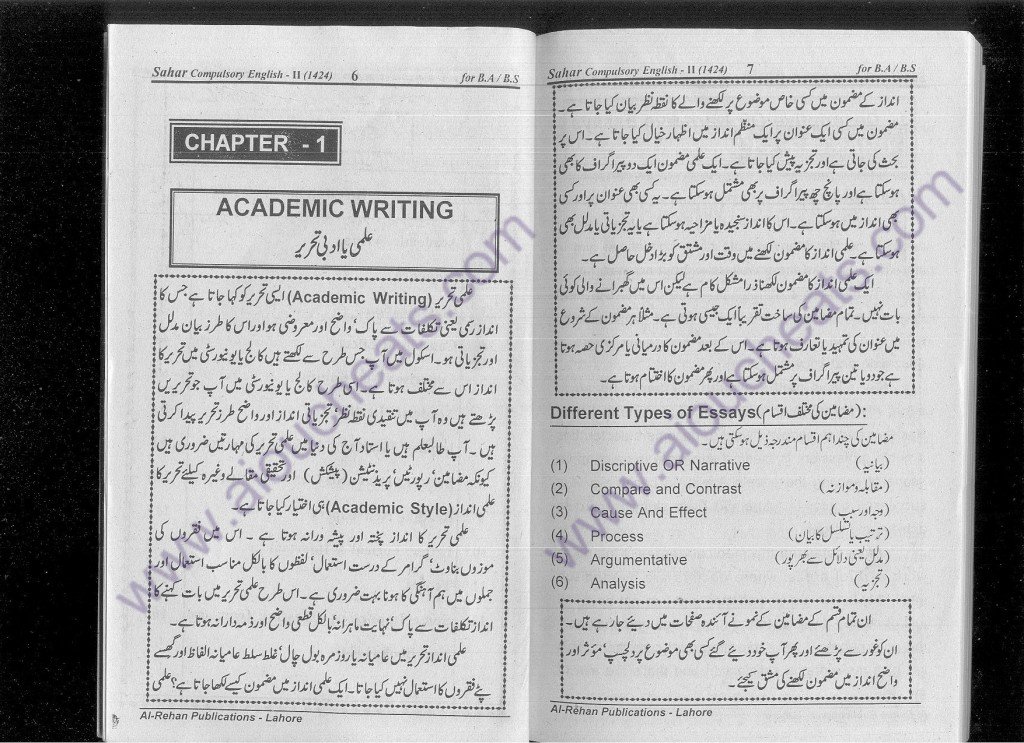 Sahar Compulsory English - II (1424) 6 for B.A / B.S
CHAPTER - 1
ACADEMIC WRITING
علمی یا ادبی تحریر
علمی تحریر (Academic Writing) ایسی تحریر کو کہا جاتا ہے جس کا
انداز رسمی یعنی تکلفات سے پاک، واضح اور معروضی ہو اور اس کا طرز بیان مدلل
اور تجزیاتی ہو۔ اسکول میں آپ جس طرح سے لکھتے ہیں کالج یا یونیورسٹی میں تحریر کا
انداز اس سے مختلف ہوتا ہے۔ اسی طرح کالج یا یونیورسٹی میں آپ جو تحریریں
پڑھتے ہیں وہ آپ میں تنقیدی نقطۂ نظر، تجزیاتی انداز اور واضح طرز تحریر پیدا کرتی
ہیں۔ آپ طالبعلم ہیں یا استاد آج کی دنیا میں علمی تحریر کی مہارتیں ضروری ہیں
کیونکہ مضامین، رپورٹیں، پریذنٹیشن (پیشکش) اور تحقیقی مقالے وغیرہ کیلئے تحریر کا
علمی انداز (Academic Style) ہی اختیار کیا جاتا ہے۔
علمی تحریر کا انداز پختہ اور پیشہ ورانہ ہوتا ہے۔ اس میں فقروں کی
موزوں بناوٹ، گرامر کے درست استعمال، لفظوں کا بالکل مناسب استعمال اور
جملوں میں ہم آہنگی کا ہونا بہت ضروری ہے۔ اس طرح علمی تحریر میں بات کہنے کا
انداز تکلفات سے پاک، نہایت ماہرانہ، بالکل قطعی واضح اور ذمہ دارانہ ہوتا ہے۔
علمی انداز تحریر میں عامیانہ یا روزمرہ بول چال، غلط سلط عامیانہ الفاظ اور گھسے
پٹے فقروں کا استعمال نہیں کیا جاتا۔ ایک علمی انداز میں مضمون کیسے لکھا جاتا ہے؟ علمی
Al-Rehan Publications - Lahore
Sahar Compulsory English - II (1424) 7 for B.A / B.S
انداز کے مضمون میں کسی خاص موضوع پر لکھنے والے کا نقطۂ نظر بیان کیا جاتا ہے۔
مضمون میں کسی ایک عنوان پر ایک منظم انداز میں اظہار خیال کیا جاتا ہے۔ اس پر
بحث کی جاتی ہے اور تجزیہ پیش کیا جاتا ہے۔ ایک علمی مضمون ایک دو پیراگراف کا بھی
ہو سکتا ہے اور پانچ چھ پیراگراف پر بھی مشتمل ہو سکتا ہے۔ یہ کسی بھی عنوان پر اور کسی
بھی انداز میں ہو سکتا ہے۔ اس کا انداز سنجیدہ یا مزاحیہ ہو سکتا ہے یا یہ تجزیاتی یا مدلل بھی
ہو سکتا ہے۔ علمی انداز کا مضمون لکھنے میں وقت اور مشق کو بڑا دخل حاصل ہے۔
ایک علمی انداز کا مضمون لکھنا ذرا مشکل کام ہے لیکن اس میں گھبرانے والی کوئی
بات نہیں۔ تمام مضامین کی ساخت تقریباً ایک جیسی ہوتی ہے۔ مثلاً ہر مضمون کے شروع
میں عنوان کی تمہید یا تعارف ہوتا ہے۔ اس کے بعد مضمون کا درمیانی یا مرکزی حصہ ہوتا
ہے جو دو یا تین پیراگراف پر مشتمل ہو سکتا ہے اور پھر مضمون کا اختتام ہوتا ہے۔
Different Types of Essays (مضامین کی مختلف اقسام):
مضامین کی چند اہم اقسام مندرجہ ذیل ہو سکتی ہیں۔
(1) Discriptive OR Narrative (بیانیہ)
(2) Compare and Contrast (مقابلہ و موازنہ)
(3) Cause And Effect (وجہ اور سبب)
(4) Process (ترتیب یا تسلسل کا بیان)
(5) Argumentative (مدلل یعنی دلائل سے بھرپور)
(6) Analysis (تجزیہ)
ان تمام قسم کے مضامین کے نمونے آئندہ صفحات میں دیئے جا رہے ہیں۔
ان کو غور سے پڑھئے اور پھر آپ خود دیئے گئے کسی بھی موضوع پر دلچسپ، مؤثر اور
واضح انداز میں مضمون لکھنے کی مشق کیجئے۔
Al-Rehan Publications - Lahore
www.aioucheats.com
www.aioucheats.com